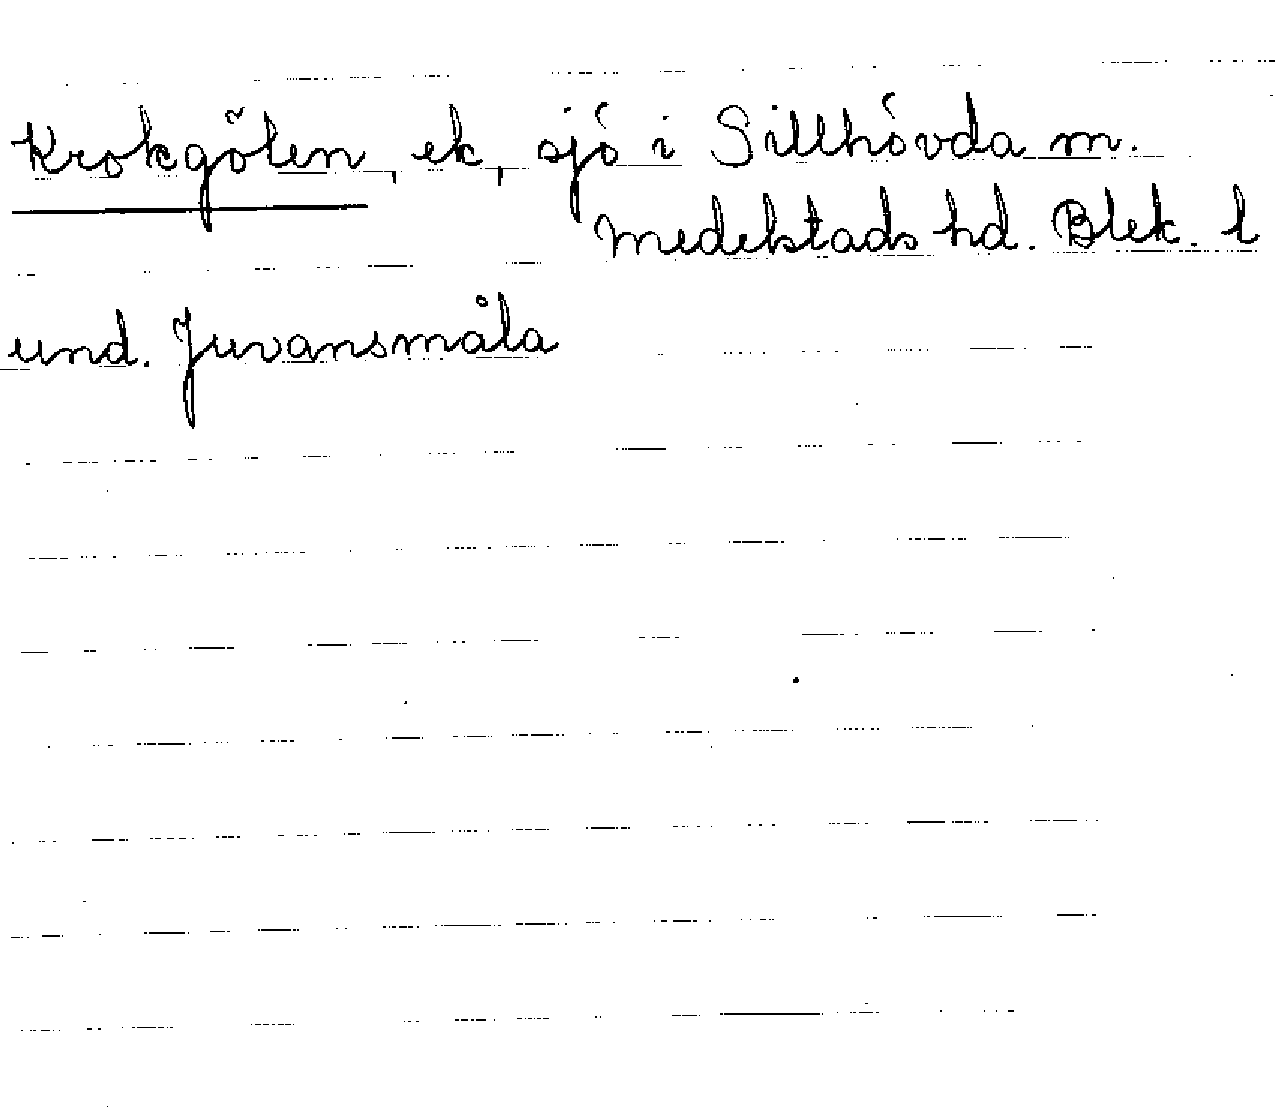 Krokgölen, ek, sjö i Sillhövda m.
Medelstads hd. Blek. l
und. Juvansmåla